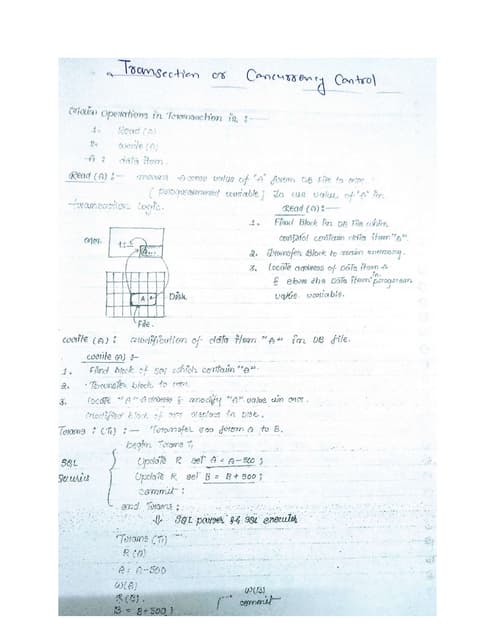 Transection or Concurrency Control
Main Operations in Transaction is :—
1. Read (A)
2. write (A)
A : data item.
Read (A) :— means Access value of "A" from DB File to mm.
[programmed variable] To use value of "A" in
transaction logic.
Read (A) :—
1. Find Block in DB File which
contain data item "A".
2. Transfer Block to main memory.
3. locate address of Data item A
& store the Data item in program
variable.
mm.
A
Disk
File.
write (A) : modification of data item "A" in DB file.
write (A) :-
1. Find block of which contain "A".
2. Transfer block to mm.
3. locate "A" Address & modify "A" value in mm.
modified block of mm in Disk.
Trans : (T1) :— Transfer 500 from A to B.
begin Trans T1
SQL
Update R set A = A-500 ;
Update R set B = B+500 ;
commit ;
end Trans ;
SQL parser & SQL executer
Trans (T1)
R (A)
A = A-500
W(A)
R (B).
B = B+500 ;
W(B)
commit